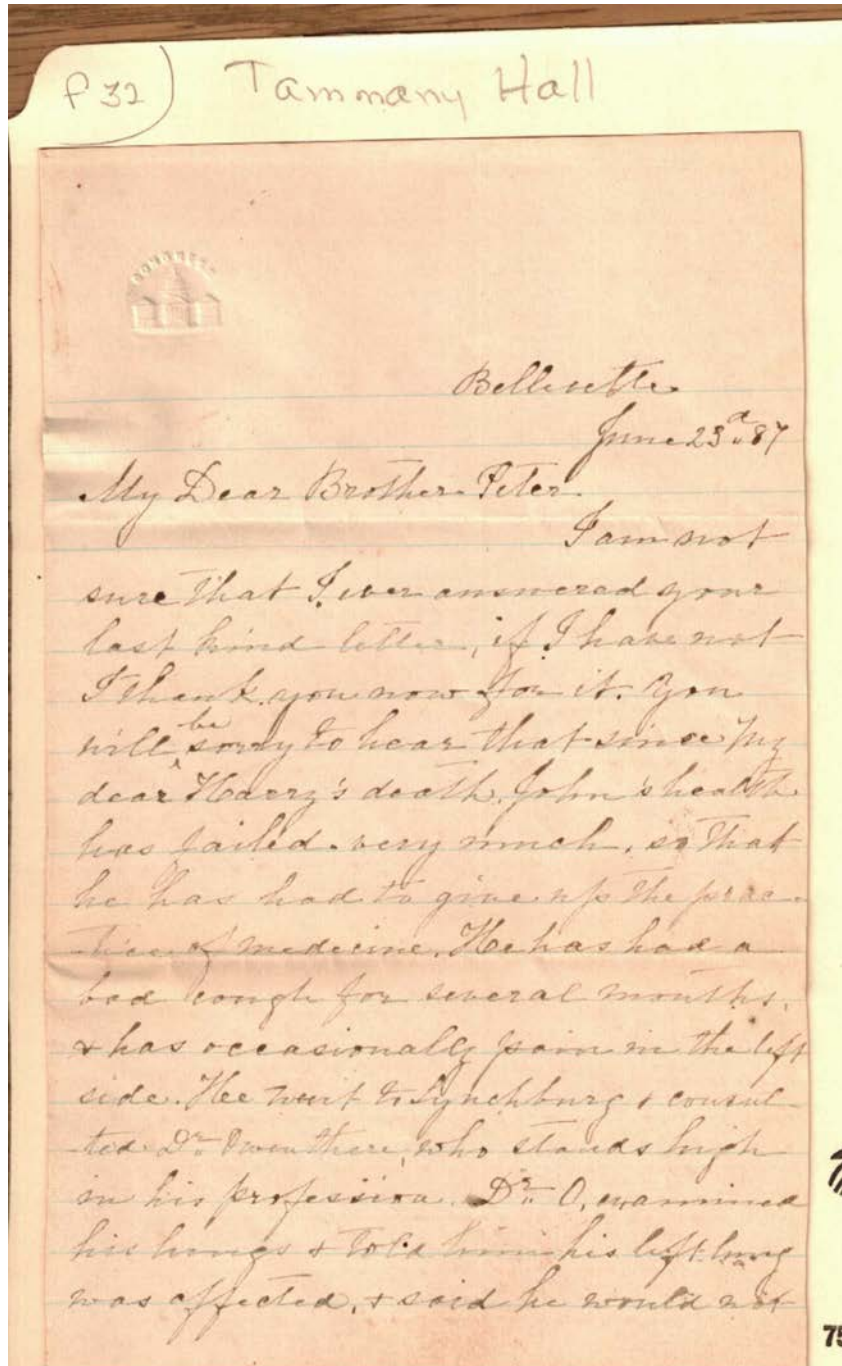 P 32) Tammany Hall
CONGRESS
Bellevette
June 23d 87
My Dear Brother Peter.
I am not
sure that I ever answered your
last kind letter, if I have not
I thank you now for it. You
will be sorry to hear that since my
dear Harry's death, John's health
has failed very much, so that
he has had to give up the prac-
tice of medicine. He has had a
bad cough for several months,
& has occasionally pain in the left
side. He went to Lynchburg & consul-
ted Dr. Owen there, who stands high
in his profession. Dr. O. examined
his lungs & told him his left lung
was affected, & said he would not
75